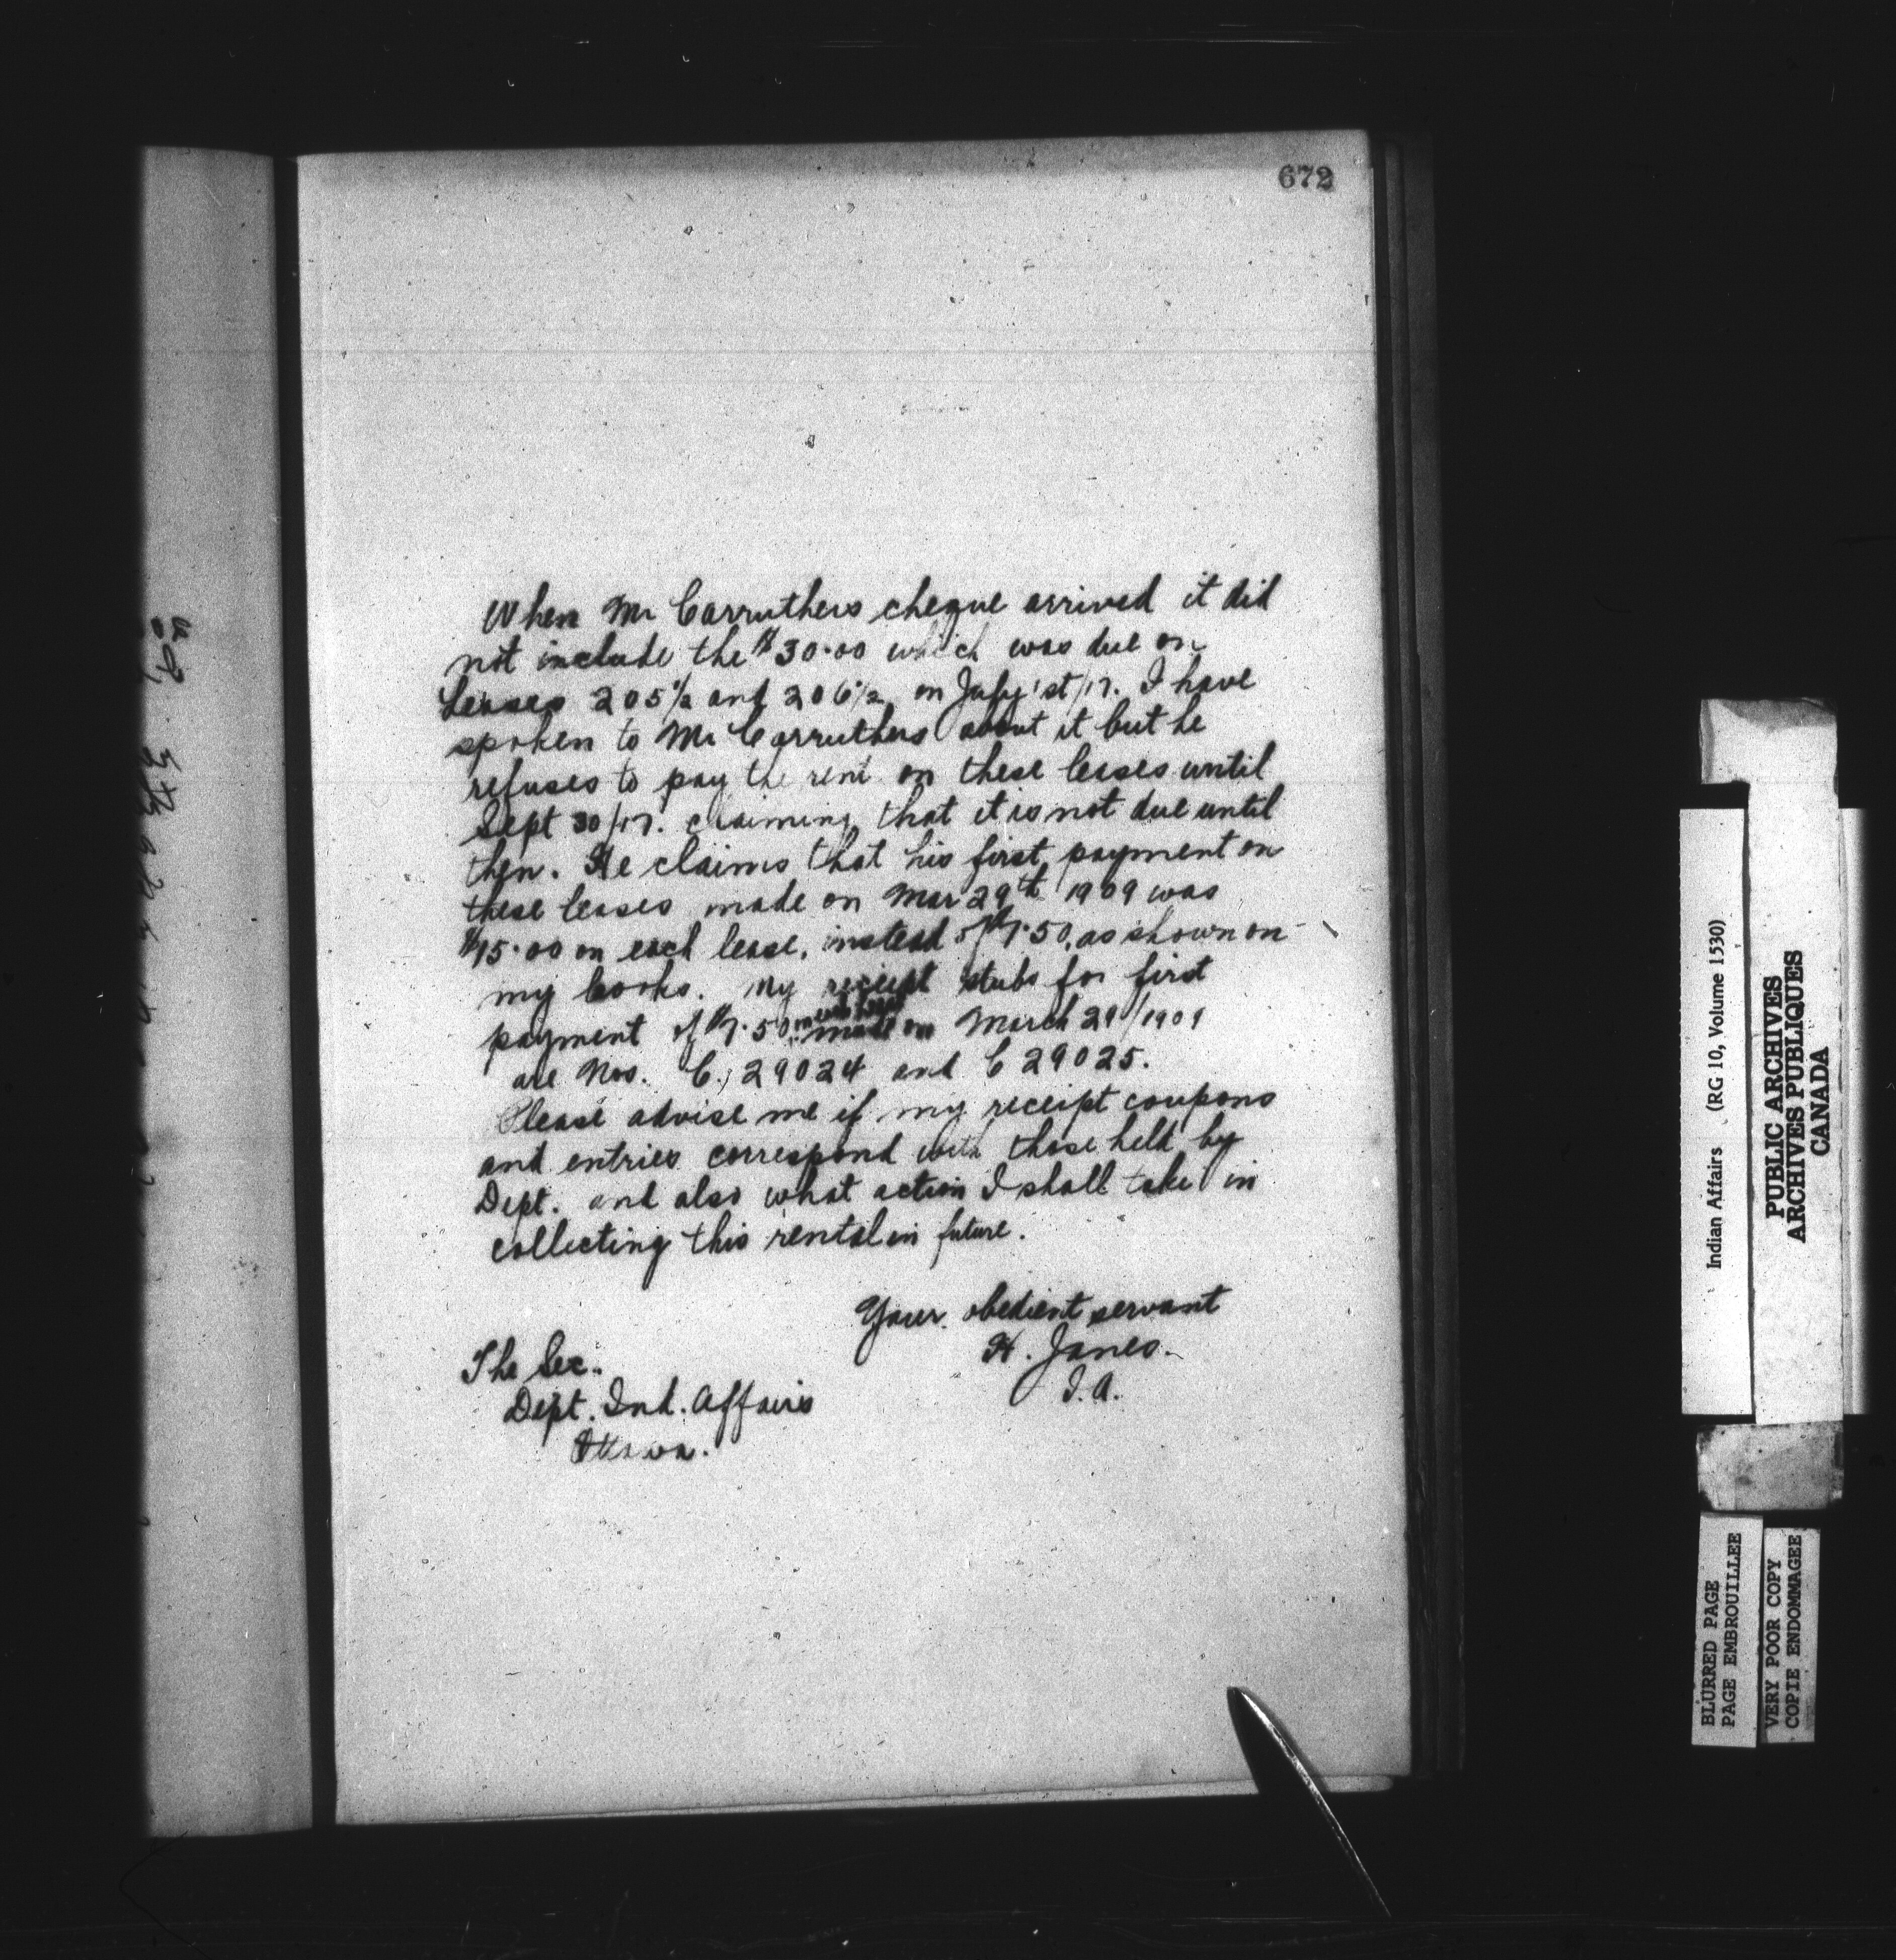 672
When Mr Carruthers cheque arrived it did
not include the $30.00 which was due on
Leases 205½ and 206½ on July 1st/17. I have
spoken to Mr Carruthers about it but he
refuses to pay the rent on these leases until
Sept 30/17. claiming that it is not due until
then. He claims that his first payment on
these leases made on Mar 29th 1909 was
$15.00 on each lease, instead of $7.50, as shown on
my books. My receipt stubs for first
payment of $7.50 on each lease made on March 29/1909
are Nos. C. 29024 and C 29025.
Please advise me if my receipt coupons
and entries correspond with those held by
Dept. and also what action I shall take in
collecting this rental in future.
Your obedient servant
H. Janes.
I.A.
The Sec.
Dept. Ind. Affairs
Ottawa.
Indian Affairs (RG 10, Volume 1530)
PUBLIC ARCHIVES
ARCHIVES PUBLIQUES
CANADA
BLURRED PAGE
PAGE EMBROUILLEE
VERY POOR COPY
COPIE ENDOMMAGEE